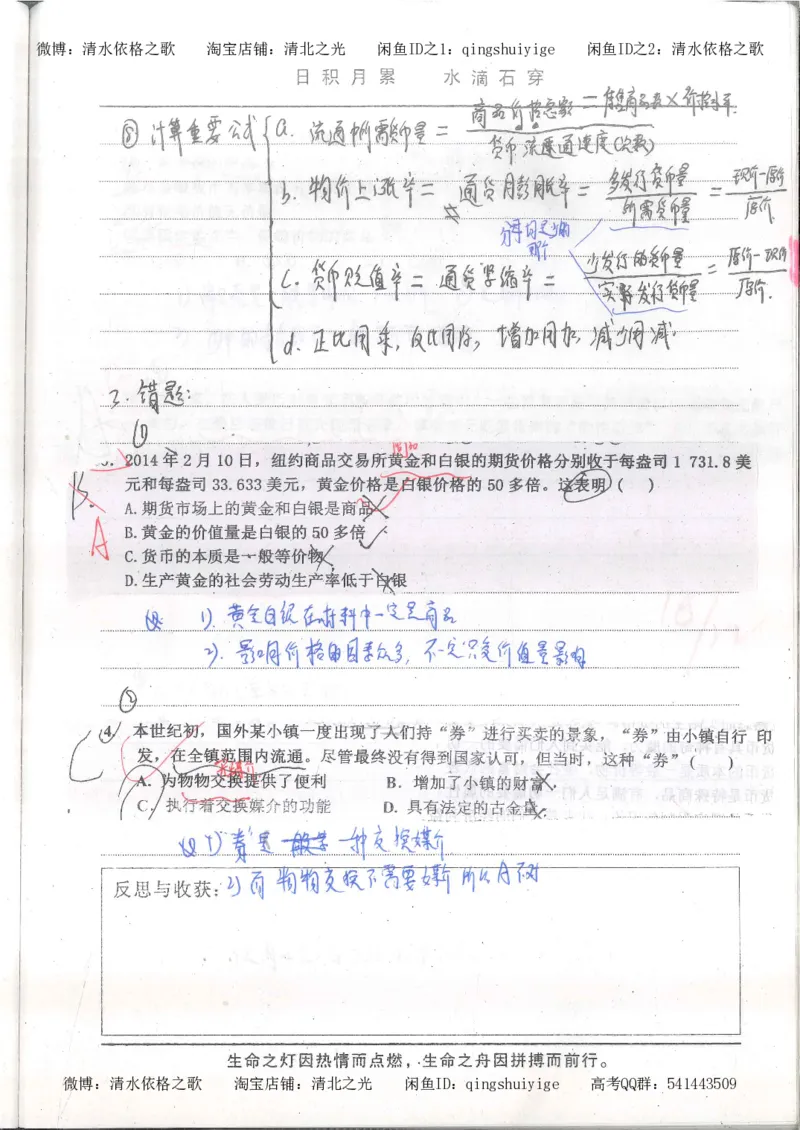 微博：清水依格之歌 淘宝店铺：清北之光 闲鱼ID之1：qingshuiyige 闲鱼ID之2：清水依格之歌
日积月累 水滴石穿
⑧ 计算重要公式
a. 流通中所需货币量 = 商品价格总额/货币流通速度(次数) = 待售商品数×价格水平
b. 物价上涨率 = 通货膨胀率 = 多发行货币量/所需货币量 = 现价-原价/原价
分母均是少的那个
c. 货币贬值率 = 通货紧缩率 = 少发行的货币量/实际发行货币量 = 原价-现价/原价.
d. 正比用乘，反比用除，增加用加，减少用减.
错题:
①
2014年2月10日，纽约商品交易所黄金和白银的期货价格分别收于每盎司1 731.8美
元和每盎司33.633美元，黄金价格是白银价格的50多倍。这表明（ ）
B.
A
A.期货市场上的黄金和白银是商品
B.黄金的价值量是白银的50多倍
C.货币的本质是一般等价物
D.生产黄金的社会劳动生产率低于白银
1). 黄金白银在材料中一定是商品
2). 影响价格的因素众多，不一定只受价值量影响
②
4. 本世纪初，国外某小镇一度出现了人们持“券”进行买卖的景象，“券”由小镇自行 印
发，在全镇范围内流通。尽管最终没有得到国家认可，但当时，这种“券”（ ）
C
A. 为物物交换提供了便利 B. 增加了小镇的财富
C. 执行着交换媒介的功能 D. 具有法定的古金量
1) 券是 一种交换媒介
反思与收获：2) 而物物交换不需要媒介 所以A不对
生命之灯因热情而点燃，生命之舟因拼搏而前行。
微博：清水依格之歌 淘宝店铺：清北之光 闲鱼ID：qingshuiyige 高考QQ群：541443509